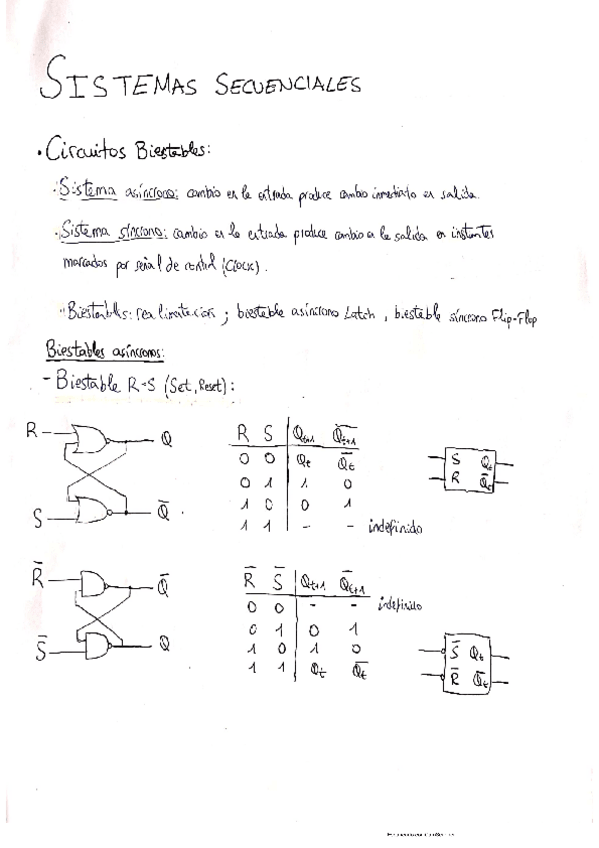 SISTEMAS SECUENCIALES
• Circuitos Biestables:
· Sistema asíncrono: cambio en la entrada produce cambio inmediato en salida.
· Sistema síncrono: cambio en la entrada produce cambio en la salida en instantes
marcados por señal de control (Clock).
· Biestables: realimentación ; biestable asíncrono Latch , biestable síncrono Flip-Flop
Biestables asíncronos:
- Biestable R-S (Set, Reset):
R Q
S Q̅
R S Qt+1 Q̅t+1
0 0 Qt Q̅t
0 1 1 0
1 0 0 1
1 1 - - indefinido
S Qt
R Q̅t
R̅ Q̅
S̅ Q
R̅ S̅ Qt+1 Q̅t+1
0 0 - - indefinido
0 1 0 1
1 0 1 0
1 1 Qt Q̅t
S̅ Qt
R̅ Q̅t